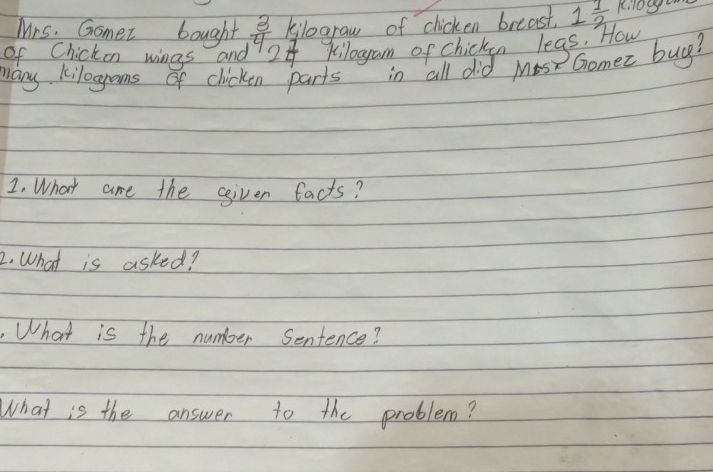 Mrs. Gomez bought 3/4 kilogram of chicken breast, 1 1/2 kilogram
of Chicken wings and 2 kilogram of chicken legs. How
many kilograms of chicken parts in all did Mrs. Gomez buy?
1. What are the given facts?
2. What is asked?
. What is the number Sentence?
What is the answer to the problem?